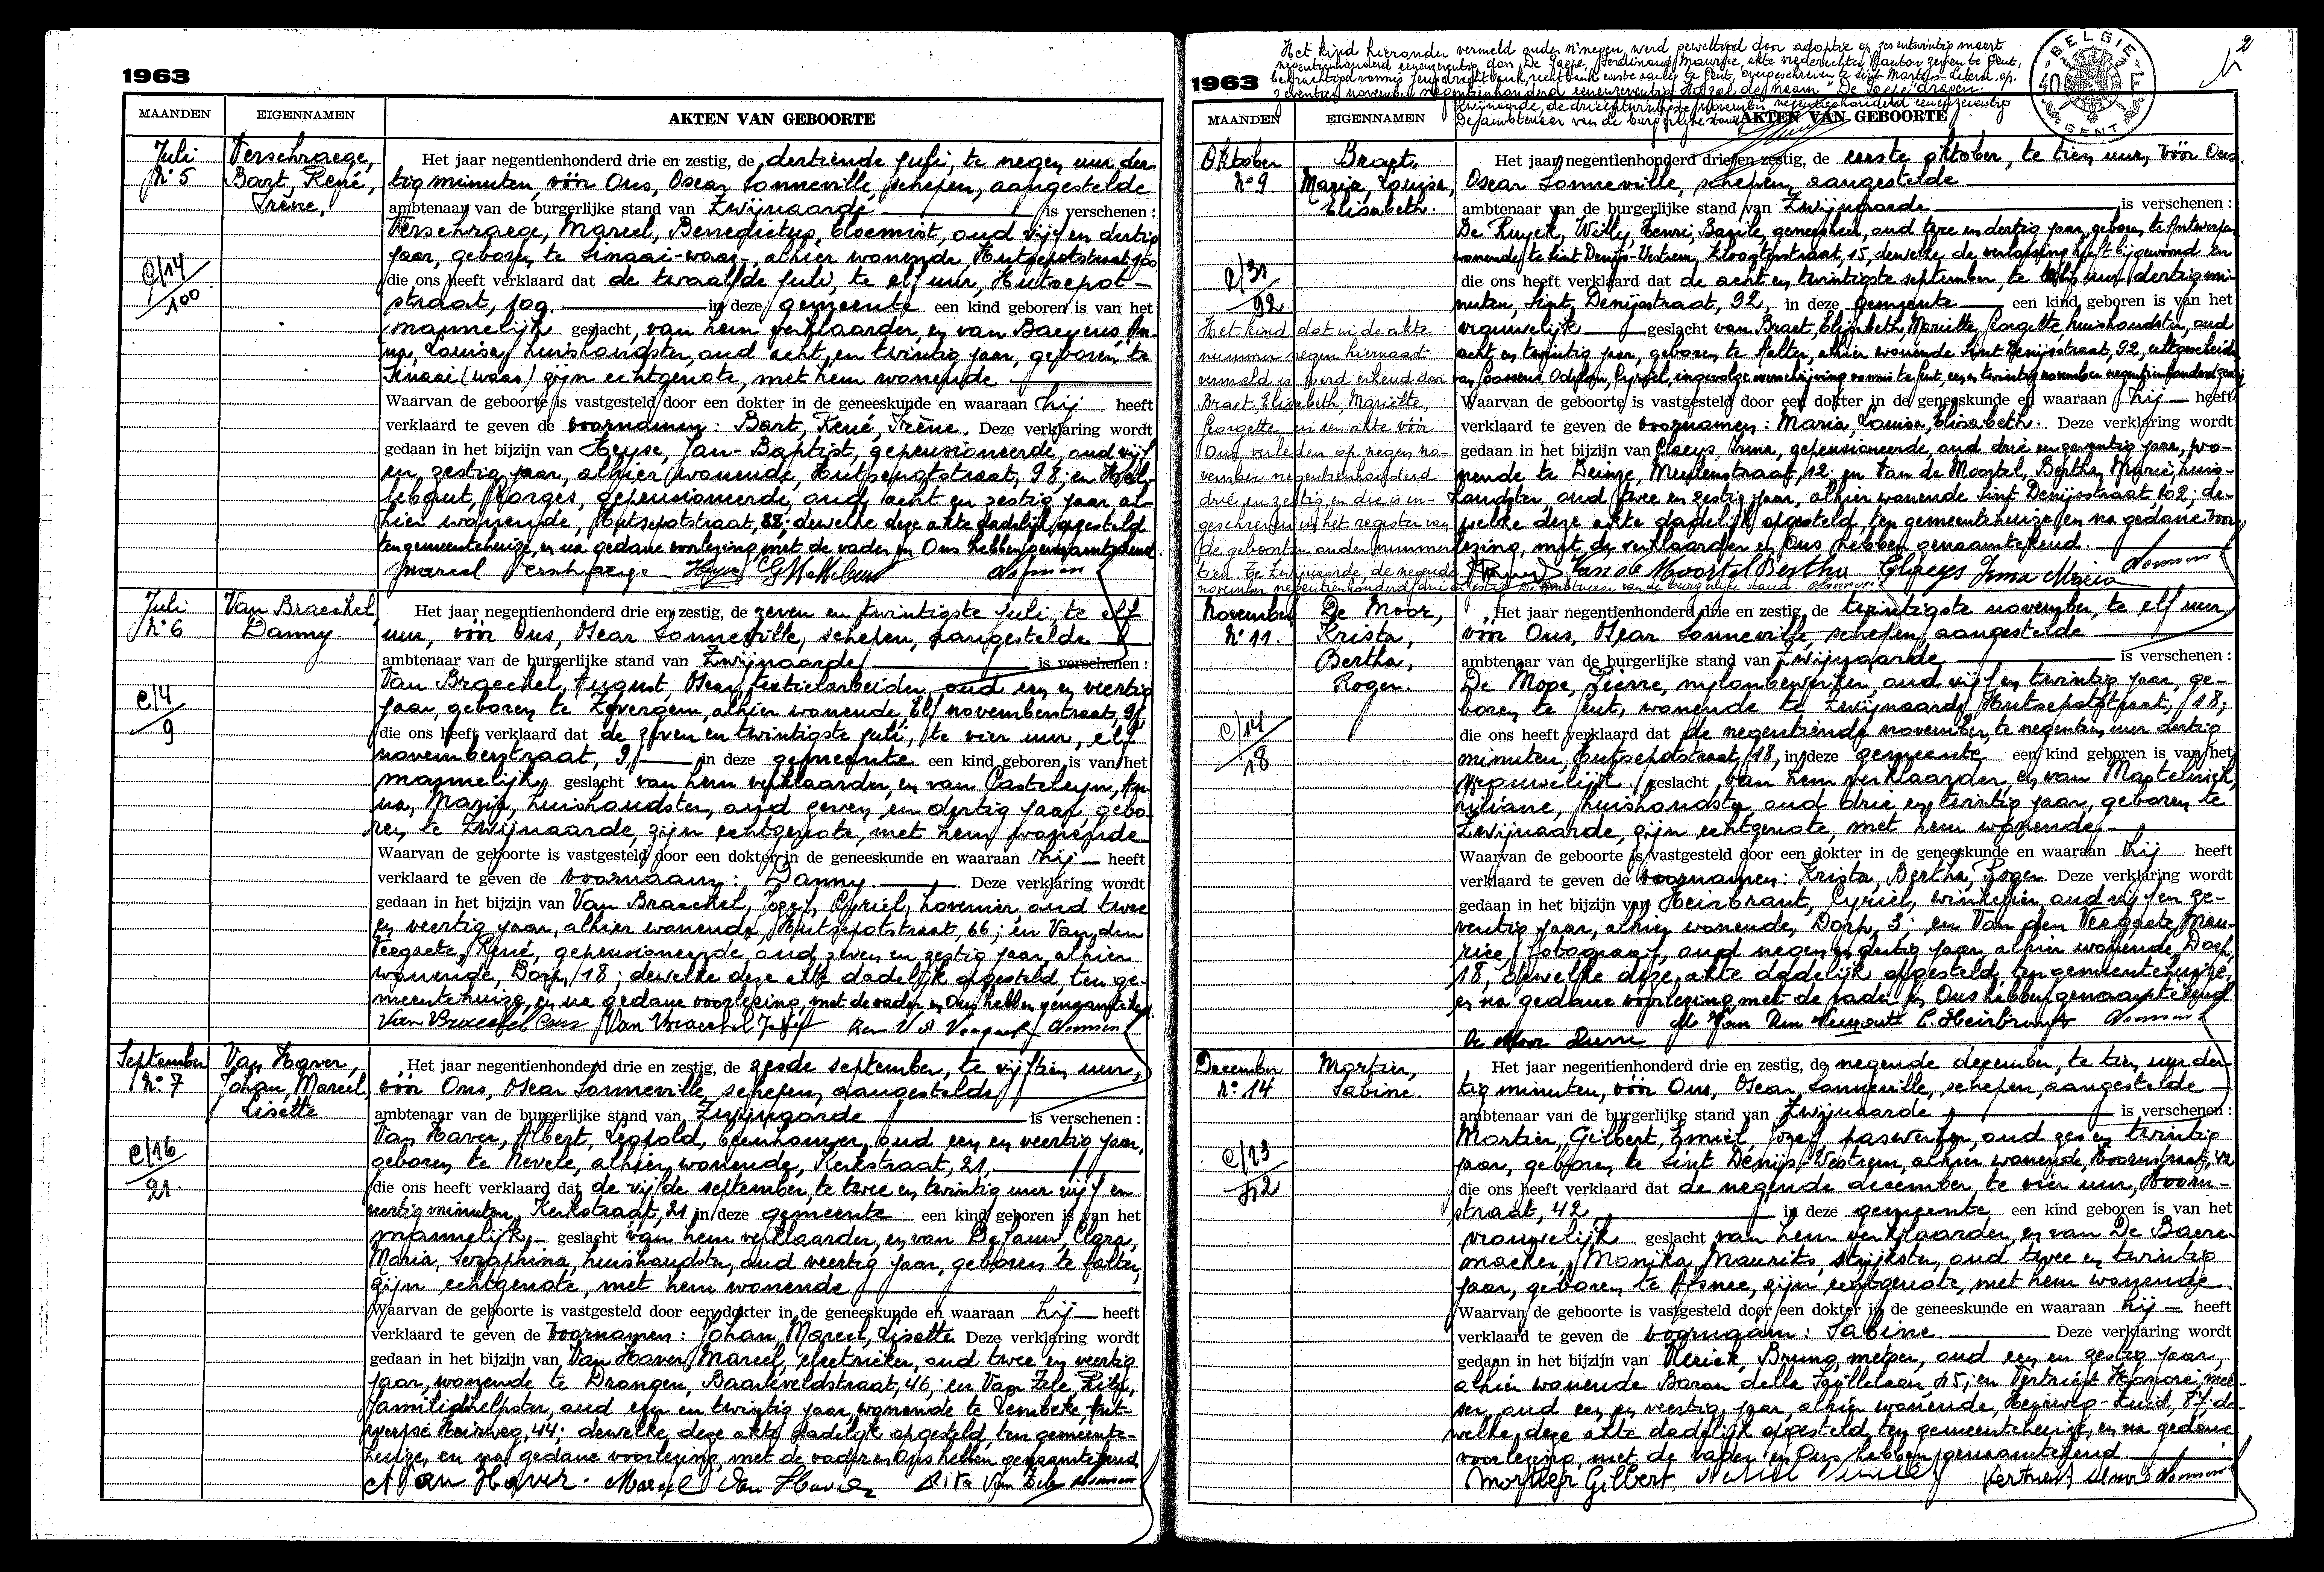 1963
MAANDEN EIGENNAMEN AKTEN VAN GEBOORTE
Juli
N° 5
Verschraege,
Bart, René,
Irène,
C/14
100
Het jaar negentienhonderd drie en zestig, de dertiende juli, te negen uur der-
tig minuten, vóór Ons, Oscar Sonneville, schepen, aangestelde
ambtenaar van de burgerlijke stand van Zwijnaarde is verschenen :
Verschraege, Marcel, Benedictus, bloemist, oud vijf en dertig
jaar, geboren te Sinaai-waas, alhier wonende Hutsepotstraat, 100
die ons heeft verklaard dat de twaalfde juli, te elf uur, Hutsepot-
straat, 109 in deze gemeente een kind geboren is van het
mannelijk geslacht, van hem verklaarder, en van Baeyens, An-
na, Louisa, huishoudster, oud acht en twintig jaar, geboren te
Sinaai (waas) zijn echtgenote, met hem wonende
Waarvan de geboorte is vastgesteld door een dokter in de geneeskunde en waaraan hij heeft
verklaard te geven de voornamen : Bart, René, Irène. Deze verklaring wordt
gedaan in het bijzijn van Heyse, Jan-Baptist, gepensioneerde, oud vijf
en zestig jaar, alhier wonende, Hutsepotstraat, 98; en Hel-
lebaut, Georges, gepensioneerde, oud acht en zestig jaar al-
hier wonende, Hutsepotstraat, 88; dewelke deze akte dadelijk opgesteld
ten gemeentehuize, en na gedane voorlezing met de vader en Ons hebben genaamtekend.
Marcel Verschraege
Juli
N° 6
Van Braeckel,
Danny.
C/4
9
Het jaar negentienhonderd drie en zestig, de zeven en twintigste juli te elf
uur, vóór Ons, Oscar Sonneville, schepen, aangestelde
ambtenaar van de burgerlijke stand van Zwijnaarde is verschenen :
Van Braeckel, August, Oscar, textielarbeider, oud een en veertig
jaar, geboren te Zevergem, alhier wonende Elf novemberstraat, 9;
die ons heeft verklaard dat de zeven en twintigste juli, te vier uur, elf
novemberstraat, 9, in deze gemeente een kind geboren is van het
mannelijk geslacht van hem verklaarder, en van Casteleyn, An-
na, Maria, huishoudster, oud zeven en dertig jaar, gebo-
ren te Zwijnaarde, zijn echtgenote, met hem wonende
Waarvan de geboorte is vastgesteld door een dokter in de geneeskunde en waaraan hij heeft
verklaard te geven de voornaam : Danny. Deze verklaring wordt
gedaan in het bijzijn van Van Braeckel, Jozef, Cyriel, hovenier, oud twee
en veertig jaar, alhier wonende, Hutsepotstraat, 66; en Van den
Veegaete, René, gepensioneerde, oud zeven en zestig jaar, alhier
wonende, Dorp, 18; dewelke deze akte dadelijk opgesteld, ten ge-
meentehuize, en na gedane voorlezing, met de vader en Ons hebben genaamtekend.
Van Braeckel Van Braeckel Jozef
September
N° 7
Van Haver,
Johan, Marcel,
Lisette
C/16
21
Het jaar negentienhonderd drie en zestig, de zesde september, te vijftien uur,
vóór Ons, Oscar Sonneville, schepen, aangestelde
ambtenaar van de burgerlijke stand van Zwijnaarde is verschenen :
Van Haver, Albert, Leopold, beenhouwer, oud een en veertig jaar,
geboren te Nevele, alhier wonende, Kerkstraat, 21,
die ons heeft verklaard dat de vijfde september, te twee en twintig uur vijf en
veertig minuten, Kerkstraat, 21 in deze gemeente een kind geboren is van het
mannelijk geslacht van hem verklaarder, en van De Pauw, Clara,
Maria, Seraphina, huishoudster, oud veertig jaar, geboren te Aalter,
zijn echtgenote, met hem wonende
Waarvan de geboorte is vastgesteld door een dokter in de geneeskunde en waaraan hij heeft
verklaard te geven de voornamen : Johan, Marcel, Lisette. Deze verklaring wordt
gedaan in het bijzijn van Van Haver, Marcel, electrieker, oud twee en veertig
jaar, wonende te Drongen, Baarleveldstraat, 46; en Van Zele, Rita,
familiehelpster, oud een en twintig jaar, wonende te Lembeke, Ant-
werpse Heirweg, 44; dewelke, deze akte dadelijk opgesteld, ten gemeente-
huize, en na gedane voorlezing, met de vader en Ons hebben genaamtekend.
A Van Haver. Marcel Van Haver Rita Van Zele
2
Het kind hieronder vermeld onder n° negen, werd gewettigd door adoptie op zes entwintig maart
negentienhonderd eenenzeventig door De Jaepe, Ferdinand, Maurice, akte vrederechter kanton Zomergem te Gent,
1963
BELGIE GENT 40
MAANDEN EIGENNAMEN AKTEN VAN GEBOORTE
Zwijnaarde, de drieentwintigste november negentienhonderd eenenzeventig
De ambtenaar van de burgerlijke stand,
Oktober
N° 9
Braet,
Maria, Louisa,
Elisabeth.
C/31
92
Het kind dat in de akte
nummer negen hiernaast
vermeld is werd erkend door
Braet, Elisabeth, Mariette,
Georgette in een akte vóór
Ons verleden op negen no-
vember negentienhonderd
drie en zestig en die is in-
geschreven in het register van
de geboorten onder nummer
tien. Te Zwijnaarde, de negende
november negentienhonderd drie en zestig De Ambtenaar van de burgerlijke stand.
Het jaar negentienhonderd drie en zestig, de eerste oktober, te tien uur, vóór Ons
Oscar Sonneville, schepen, aangestelde
ambtenaar van de burgerlijke stand van Zwijnaarde is verschenen :
De Ruyck, Willy, Henri, Basile, geneesheer, oud twee en dertig jaar, geboren te Antwerpen
wonende te Sint Denijs-Westrem, Kloosterstraat, 15, dewelke de verlossing heeft bijgewoond en
die ons heeft verklaard dat de acht en twintigste september, te uur dertig mi-
nuten, Sint Denijsstraat, 92, in deze gemeente een kind geboren is van het
vrouwelijk geslacht van Braet, Elisabeth, Mariette, Georgette huishoudster, oud
acht en twintig jaar, geboren te Aalter, alhier wonende Sint Denijsstraat, 92, echtgescheiden
van Goossens, Odilon, Cyriel, ingevolge overschrijving vonnis te Gent, een en twintig november negentienhonderd zestig
Waarvan de geboorte is vastgesteld door een dokter in de geneeskunde en waaraan hij heeft
verklaard te geven de voornamen : Maria, Louisa, Elisabeth. Deze verklaring wordt
gedaan in het bijzijn van Claeys, Irma, gepensioneerde, oud drie en zeventig jaar, wo-
nende te Deinze, Meulenstraat, 12; en Van de Moortel, Bertha, Marie, huis-
houdster oud twee en zestig jaar, alhier wonende Sint Denijsstraat, 102; de-
welke deze akte dadelijk opgesteld, ten gemeentehuize, en na gedane voor-
lezing, met de verklaarder en Ons hebben genaamtekend.
Van de Moortel Bertha Claeys Irma Maria
November
N° 11.
De Moor,
Krista,
Bertha,
Roger.
C/14
18
Het jaar negentienhonderd drie en zestig, de twintigste november, te elf uur,
vóór Ons, Oscar Sonneville, schepen, aangestelde
ambtenaar van de burgerlijke stand van Zwijnaarde is verschenen :
De Moor, Pierre, nylonbewerker, oud vijf en twintig jaar, ge-
boren te Gent, wonende te Zwijnaarde Hutsepotstraat, 18;
die ons heeft verklaard dat de negentiende november, te negentien uur dertig
minuten, Hutsepotstraat, 18, in deze gemeente een kind geboren is van het
vrouwelijk geslacht, van hem verklaarder, en van Mastelinck,
huishoudster, oud drie en twintig jaar, geboren te
Zwijnaarde, zijn echtgenote, met hem wonende
Waarvan de geboorte is vastgesteld door een dokter in de geneeskunde en waaraan hij heeft
verklaard te geven de voornamen : Krista, Bertha, Roger. Deze verklaring wordt
gedaan in het bijzijn van Heirbraut, Cyriel, winkelier oud vijf en ze-
ventig jaar, alhier wonende, Dorp, 3; en Van den Veegaete, Mau-
rice, fotograaf, oud negen en dertig jaar, alhier wonende, Dorp,
18; dewelke deze akte dadelijk opgesteld ten gemeentehuize,
en na gedane voorlezing met de vader en Ons hebben genaamtekend
C. Heirbraut
De Moor Pierre
December
N° 14
Mortier,
Sabine.
C/23
42
Het jaar negentienhonderd drie en zestig, de negende december, te tien uur der-
tig minuten, vóór Ons, Oscar Sonneville, schepen, aangestelde
ambtenaar van de burgerlijke stand van Zwijnaarde is verschenen :
Mortier, Gilbert, Emiel, Jozef, paswerker, oud zes en twintig
jaar, geboren te Sint Denijs Westrem, alhier wonende, Hoornstraat, 42
die ons heeft verklaard dat de negende december, te vier uur, Hoorn-
straat, 42, in deze gemeente een kind geboren is van het
vrouwelijk geslacht van hem verklaarder, en van De Baere-
maeker, Monika, Maurits, strijkster, oud twee en twintig
jaar, geboren te Afsnee, zijn echtgenote, met hem wonende
Waarvan de geboorte is vastgesteld door een dokter in de geneeskunde en waaraan hij heeft
verklaard te geven de voornaam : Sabine. Deze verklaring wordt
gedaan in het bijzijn van Bruno, metser, oud een en zestig jaar,
alhier wonende Baron delle Faillelaan, 15; en Vertriest Honoré, met-
ser, oud een en veertig jaar, alhier wonende, Heirweg-Zuid, 57 de-
welke, deze akte dadelijk opgesteld, ten gemeentehuize, en na gedane
voorlezing, met de vader en Ons hebben genaamtekend
Mortier Gilbert.